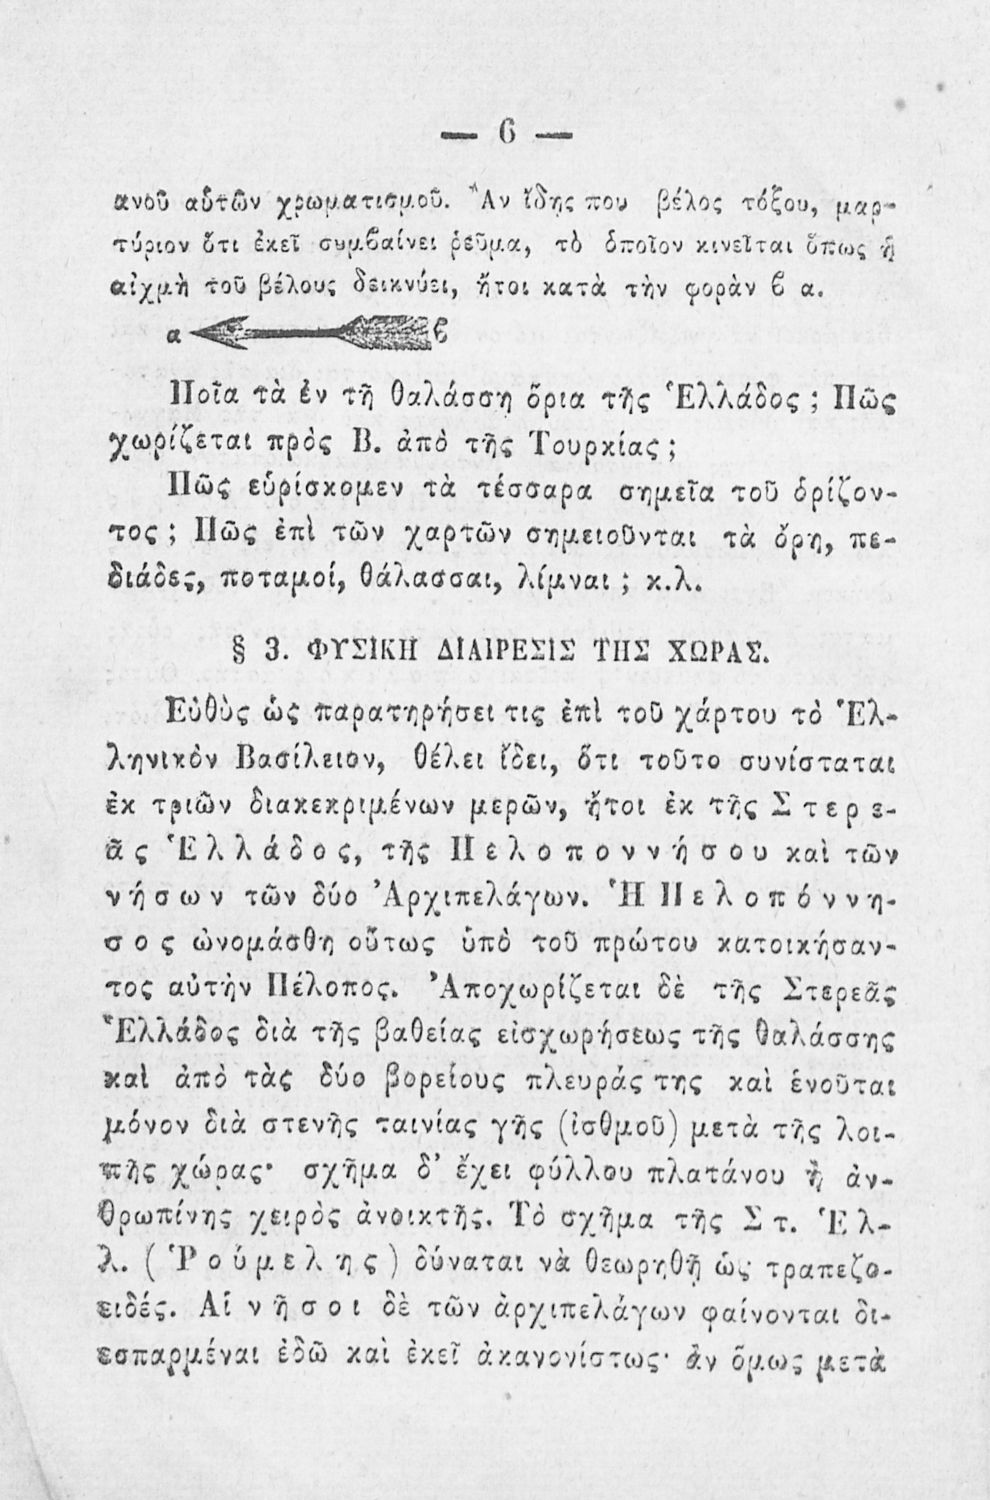 — 6 —
ανοῦ αὐτῶν χρωματισμοῦ. Ἂν ἴδῃς που βέλος τόξου, μαρ-
τύριον ὅτι ἐκεῖ συμϐαίνει ῥεῦμα, τὸ ὁποῖον κινεῖται ὅπως ἡ
αἰχμὴ τοῦ βέλους δεικνύει, ἤτοι κατὰ τὴν φορὰν ϐ α.
α ϐ
Ποῖα τὰ ἐν τῇ θαλάσσῃ ὅρια τῆς Ἑλλάδος ; Πῶς
χωρίζεται πρὸς Β. ἀπὸ τῆς Τουρκίας ;
Πῶς εὑρίσκομεν τὰ τέσσαρα σημεῖα τοῦ ὁρίζον-
τος ; Πῶς ἐπὶ τῶν χαρτῶν σημειοῦνται τὰ ὄρη, πε-
διάδες, ποταμοί, θάλασσαι, λίμναι ; κ.λ.
§ 3. ΦΥΣΙΚΗ ΔΙΑΙΡΕΣΙΣ ΤΗΣ ΧΩΡΑΣ.
Εὐθὺς ὡς παρατηρήσει τις ἐπὶ τοῦ χάρτου τὸ Ἑλ-
ληνικὸν Βασίλειον, θέλει ἴδει, ὅτι τοῦτο συνίσταται
ἐκ τριῶν διακεκριμένων μερῶν, ἤτοι ἐκ τῆς Στερε-
ᾶς Ἑλλάδος, τῆς Πελοποννήσου καὶ τῶν
νήσων τῶν δύο Ἀρχιπελάγων. Ἡ Πελοπόννη-
σος ὠνομάσθη οὕτως ὑπὸ τοῦ πρώτου κατοικήσαν-
τος αὐτὴν Πέλοπος. Ἀποχωρίζεται δὲ τῆς Στερεᾶς
Ἑλλάδος διὰ τῆς βαθείας εἰσχωρήσεως τῆς θαλάσσης
καὶ ἀπὸ τὰς δύο βορείους πλευράς της καὶ ἑνοῦται
μόνον διὰ στενῆς ταινίας γῆς (ἰσθμοῦ) μετὰ τῆς λοι-
πῆς χώρας· σχῆμα δ’ ἔχει φύλλου πλατάνου ἢ ἀν-
θρωπίνης χειρὸς ἀνοικτῆς. Τὸ σχῆμα τῆς Στ. Ἑλ-
λ. (Ῥούμελης) δύναται νὰ θεωρηθῇ ὡς τραπεζο-
ειδές. Αἱ νῆσοι δὲ τῶν ἀρχιπελάγων φαίνονται δι-
εσπαρμέναι ἐδῶ καὶ ἐκεῖ ἀκανονίστως· ἀν ὅμως μετὰ